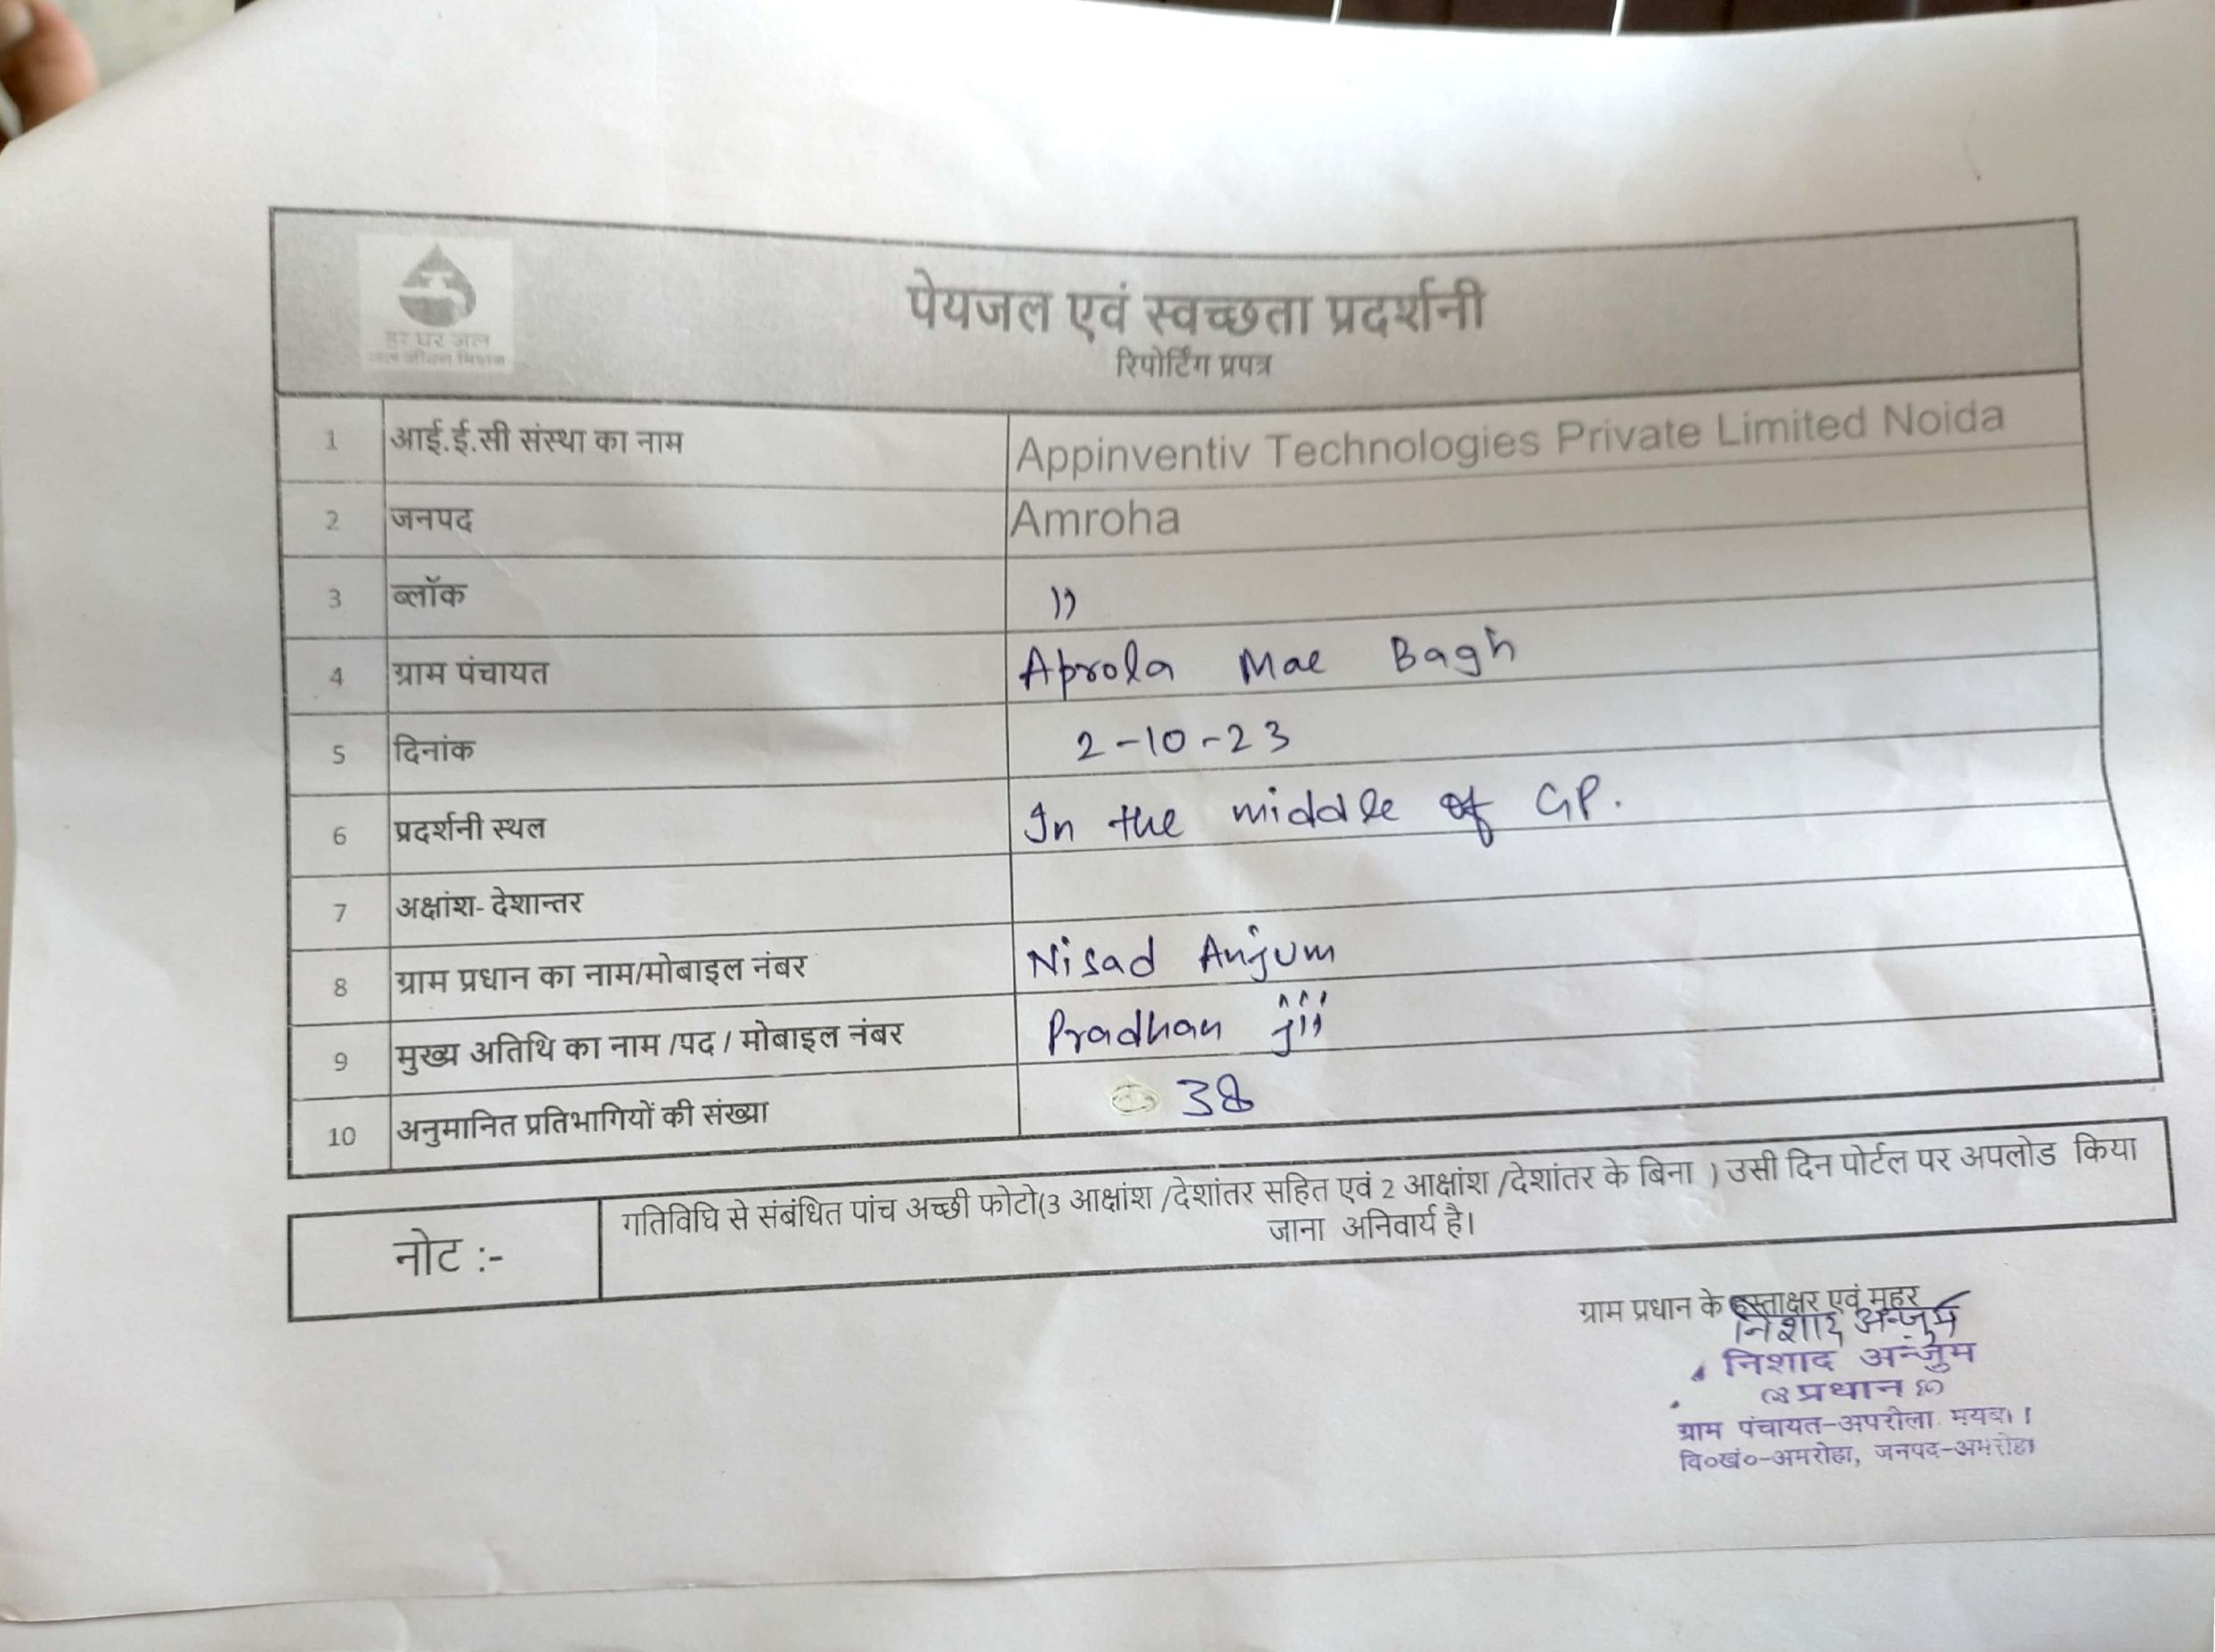 हर घर जल
जल जीवन मिशन
पेयजल एवं स्वच्छता प्रदर्शनी
रिपोर्टिंग प्रपत्र
1 आई.ई.सी संस्था का नाम Appinventiv Technologies Private Limited Noida
2 जनपद Amroha
3 ब्लॉक ))
4 ग्राम पंचायत Aprola Mae Bagh
5 दिनांक 2-10-23
6 प्रदर्शनी स्थल In the middle of GP.
7 अक्षांश- देशान्तर
8 ग्राम प्रधान का नाम/मोबाइल नंबर Nisad Anjum
9 मुख्य अतिथि का नाम /पद / मोबाइल नंबर Pradhan jii
10 अनुमानित प्रतिभागियों की संख्या 38
नोट :- गतिविधि से संबंधित पांच अच्छी फोटो(3 आक्षांश /देशांतर सहित एवं 2 आक्षांश /देशांतर के बिना ) उसी दिन पोर्टल पर अपलोड किया
जाना अनिवार्य है।
ग्राम प्रधान के हस्ताक्षर एवं मुहर
निशाद अन्जुम
निशाद अन्जुम
प्रधान
ग्राम पंचायत-अपरोला
वि०खं०-अमरोहा, जनपद-अमरोहा